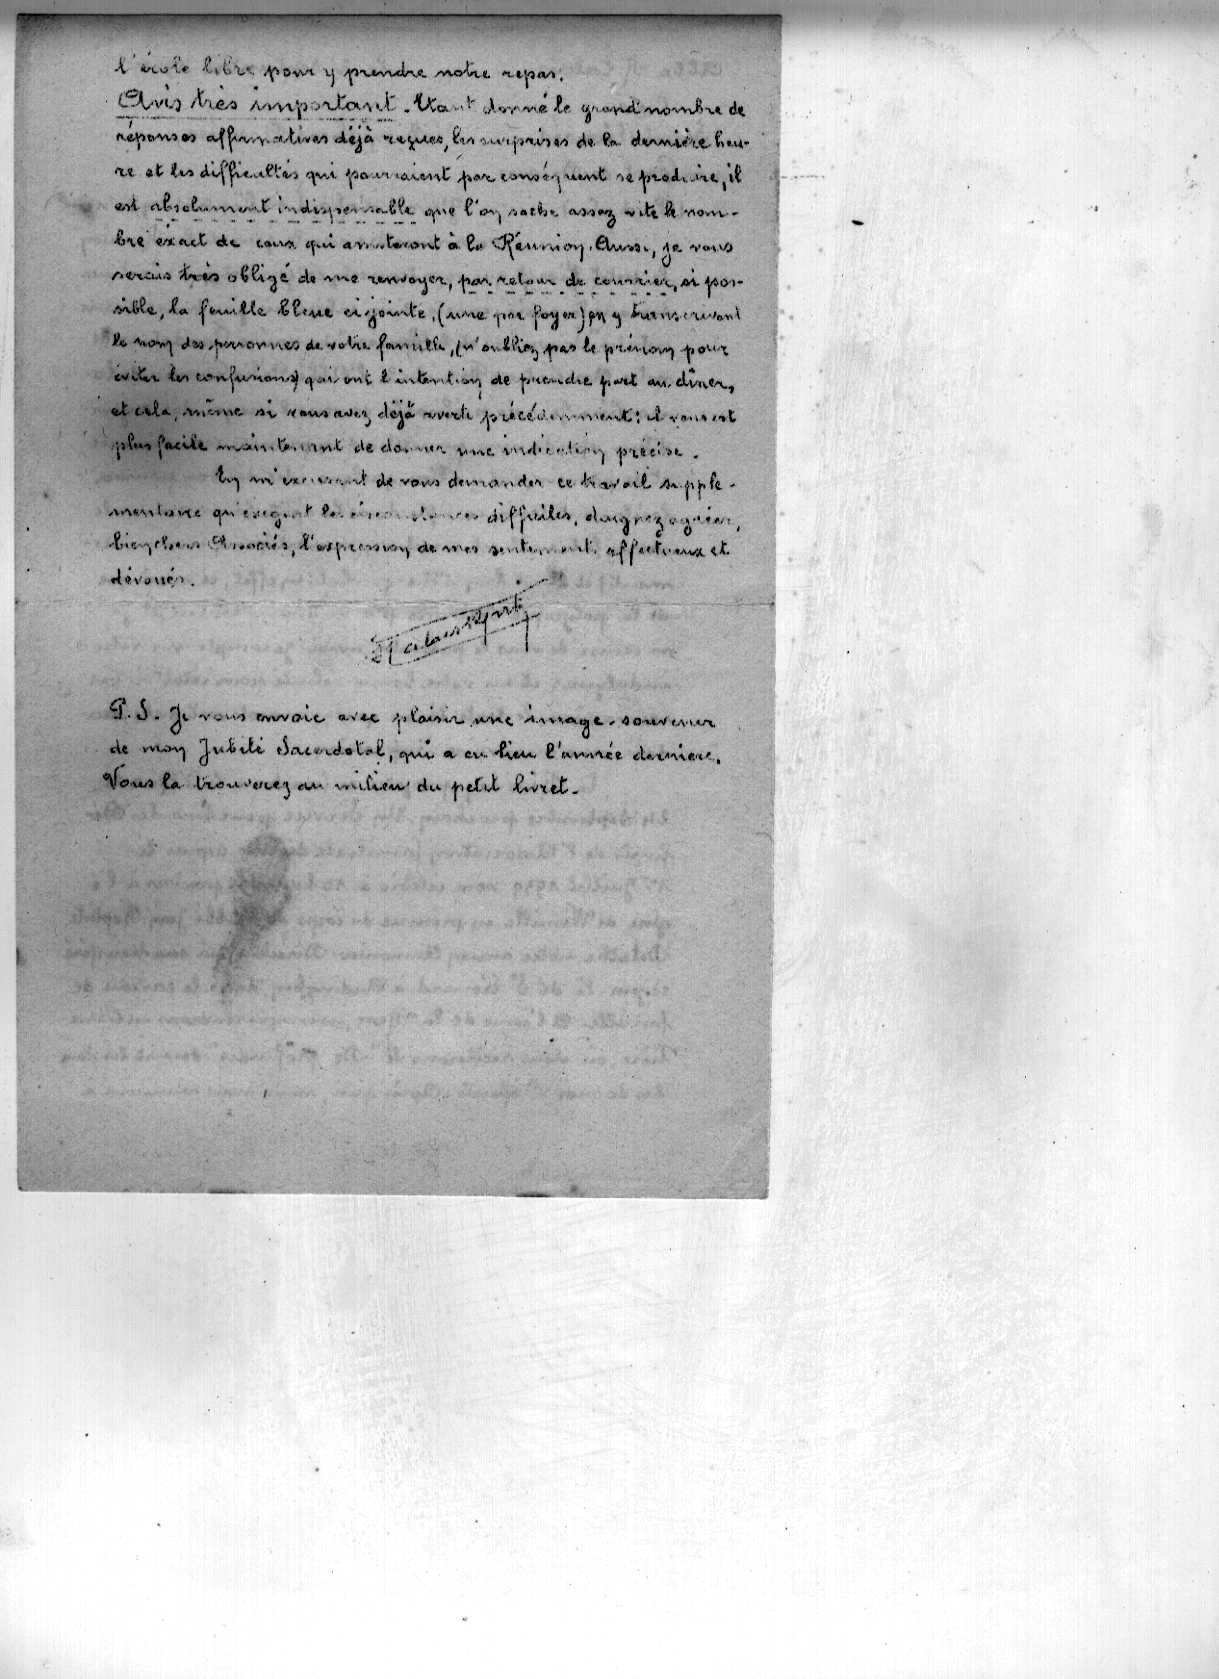 l'école libre pour y prendre notre repas.
Avis très important. Etant donné le grand nombre de
réponses affirmatives déjà reçues, les surprises de la dernière heu-
re et les difficultés qui pourraient par conséquent se produire, il
est absolument indispensable que l'on sache assez vite le nom-
bre exact de ceux qui assisteront à la Réunion. Aussi, je vous
serais très obligé de me renvoyer, par retour de courrier, si pos-
sible, la feuille bleue ci-jointe, (une par foyer) en y transcrivant
le nom des personnes de votre famille, (n'oubliez pas le prénom pour
éviter les confusions) qui ont l'intention de prendre part au dîner,
et cela, même si vous avez déjà averti précédemment: il vous est
plus facile maintenant de donner une indication précise.
En m'excusant de vous demander ce travail supplé-
mentaire qu'exigent les circonstances difficiles, daignez agréer,
bien chers Associés, l'expression de mes sentiments affectueux et
dévoués.
P.S. Je vous envoie avec plaisir une image-souvenir
de mon Jubilé Sacerdotal, qui a eu lieu l'année dernière.
Vous la trouverez au milieu du petit livret.